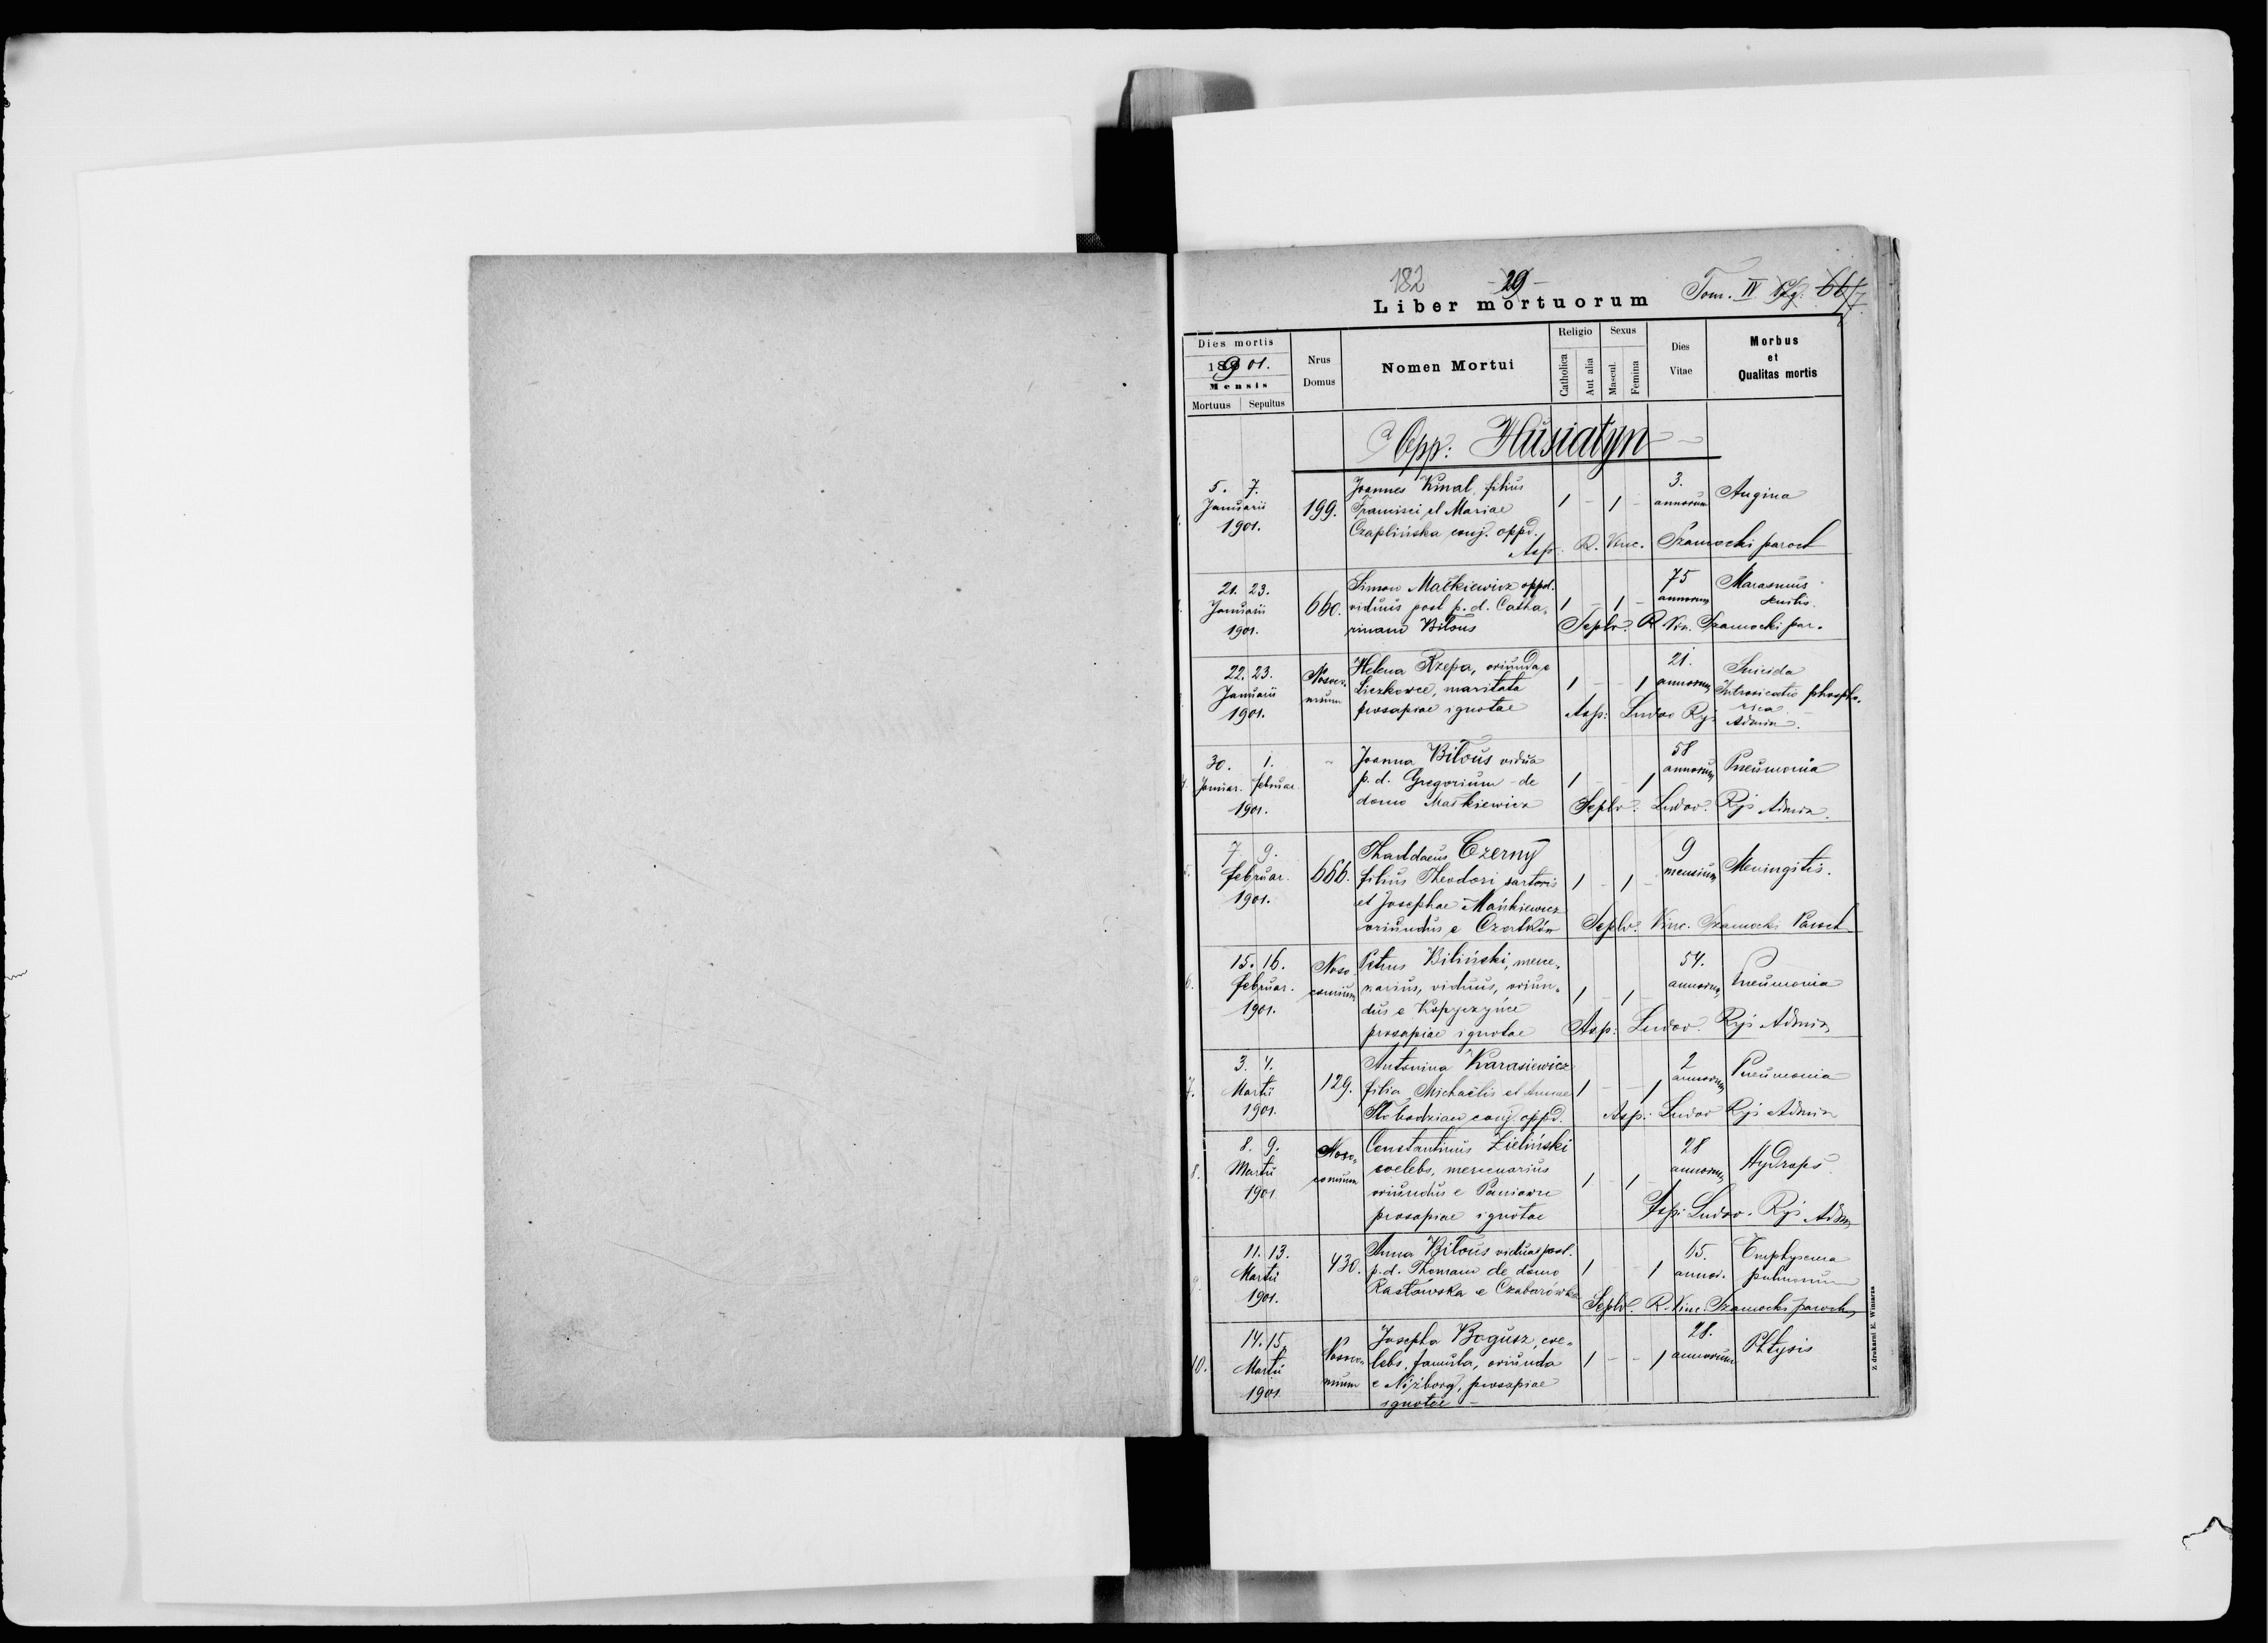 182 - 29 - Tom. IV Pag. 66/7
Liber mortuorum
Dies mortis
1901.
Mensis
Mortuus Sepultus
Nrus Domus
Nomen Mortui
Religio
Catholica
Aut alia
Sexus
Mascul.
Femina
Dies Vitae
Morbus
et
Qualitas mortis
Opp: Husiatyn
5. 7. Januarii 1901. 199. Joannes Kinal filius 1 - 1 - 3. annorum Angina
Francisci et Mariae
Czaplińska conj. oppd.
Asp: R. Vinc. Szamocki paroch
21. 23. Januarii 1901. 660. Simon Maćkiewicz oppd. 1 - 1 - 75 annorum Marasmus senilis.
viduus post p. d. Catha-
rinam Bilous
Seplv. R Vin. Szamocki par.
22. 23. Januarii 1901. Nosocomium Helena Rzepa, oriunda e 1 - - 1 21. annorum Suicida
Liczkowce, maritata Intoxicatio phospho-
prosapiae ignotae rica
Asp: Ludov Ryś Admin.
4. 30. Januar. 1. februar. 1901. " Joanna Bilous vidua 1 - - 1 58 annorum Pneumonia
p. d. Gregorium de
domo Maśkiewicz
Seplv. Ludov. Ryś Admin.
5. 7. 9. februar. 1901. 666. Thaddaeus Czerny 1 - 1 - 9 mensium Meningitis.
filius Theodori sartoris
et Josephae Mańkiewicz
oriundus e Czortków
Seplv. Vinc. Szamocki Paroch
6. 15. 16. februar. 1901. Nosocomium Petrus Biliński, merce- 1 - 1 - 54. annorum Pneumonia
narius, viduus, oriun-
dus e Kopyczyńce
prosapiae ignotae
Asp: Ludov. Ryś Admin
7. 3. 4. Martii 1901. 129. Antonina Karasiewicz 1 - - 1 2 annorum Pneumonia
filia Michaëlis et Annae
Słobodzian conj. oppd.
Asp: Ludov Ryś Admin
8. 8. 9. Martii 1901 Nosocomium Constantinus Zieliński 1 - 1 - 28 annorum Hydrops
coelebs, mercenarius
oriundus e
prosapiae ignotae
Asp: Ludov. Ryś Adm
9. 11. 13. Martii 1901. 430. Anna Bilous viduas post. 1 - - 1 65. annor. Emphysema
p. d. Thomam de domo pulmonum
Rasławska e Czabarówka
Seplv. R. Vinc. Szamocki paroch
10. 14. 15. Martii 1901 Nosocomium Josepha Bogusz, coe- 1 - - 1 28. annorum Phtysis
lebs, famula, oriunda
e Niżborg, prosapiae
ignotae -
Z drukarni E. Winiarza